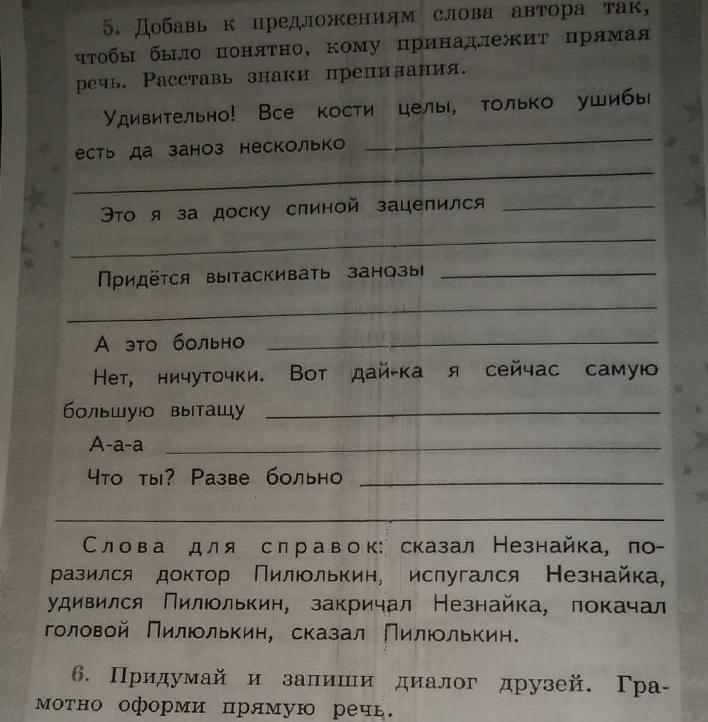 5. Добавь к предложениям слова автора так,
чтобы было понятно, кому принадлежит прямая
речь. Расставь знаки препинания.
Удивительно! Все кости целы, только ушибы
есть да заноз несколько
Это я за доску спиной зацепился
Придётся вытаскивать занозы
А это больно
Нет, ничуточки. Вот дай-ка я сейчас самую
большую вытащу
А-а-а
Что ты? Разве больно
Слова для справок: сказал Незнайка, по-
разился доктор Пилюлькин, испугался Незнайка,
удивился Пилюлькин, закричал Незнайка, покачал
головой Пилюлькин, сказал Пилюлькин.
6. Придумай и запиши диалог друзей. Гра-
мотно оформи прямую речь.